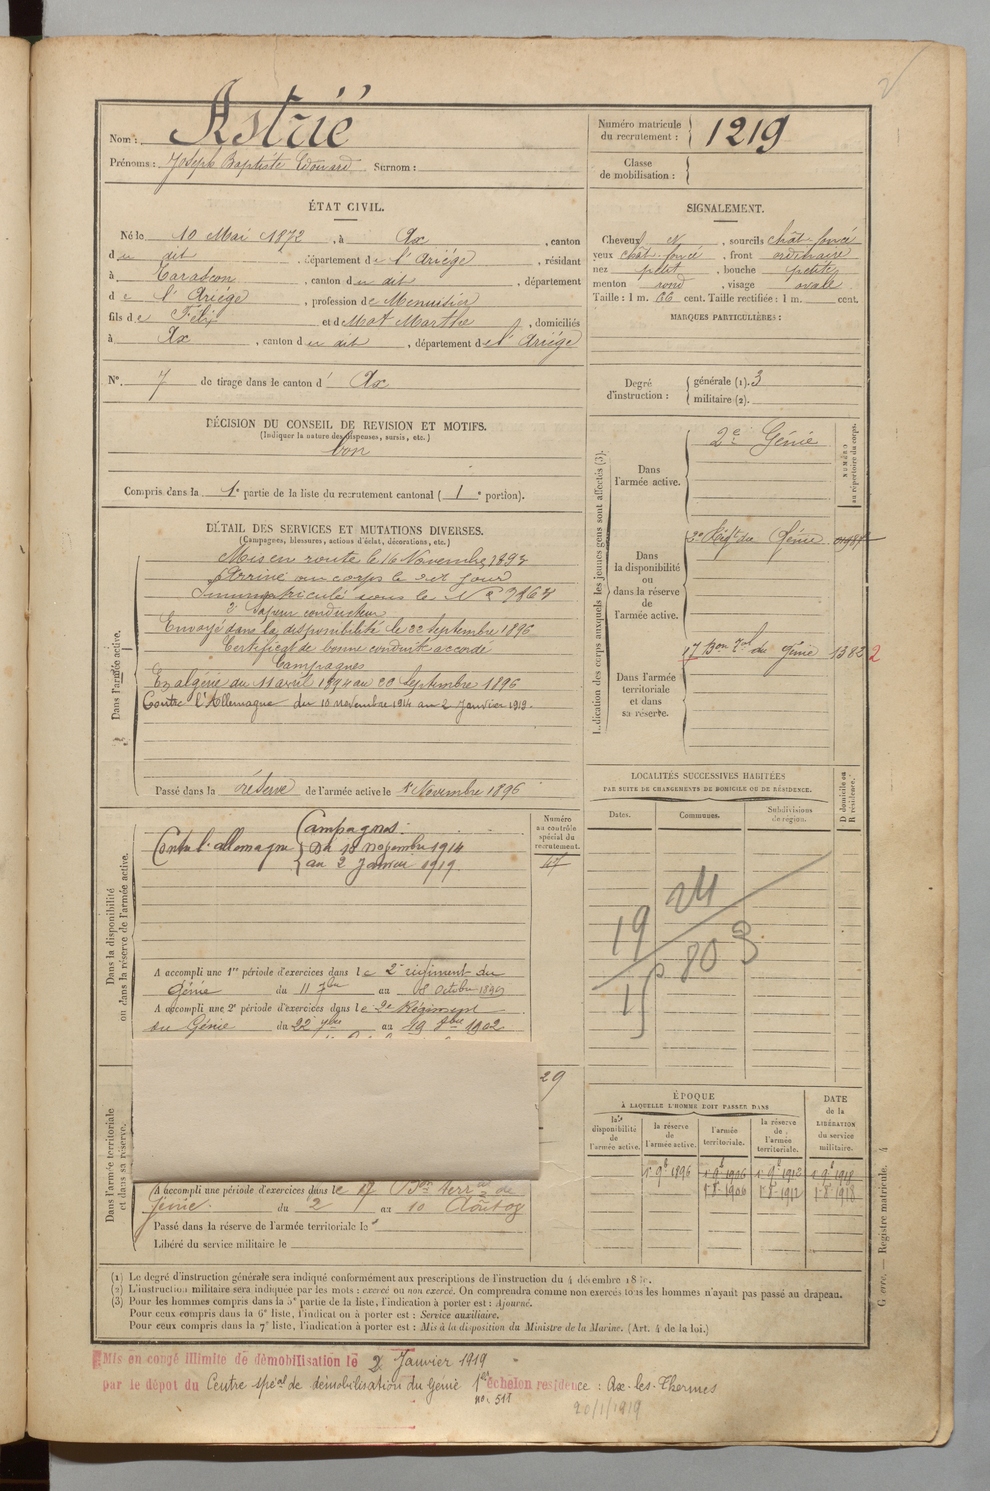 Nom : Astrié
Prénoms : Joseph Baptiste Edouard Surnom :
Numéro matricule du recrutement : 1219
Classe de mobilisation :
ÉTAT CIVIL.
Né le 10 Mai 1872, à Ax, canton
du dit, département de l'Ariège, résidant
à Tarascon, canton du dit, département
de l'Ariège, profession de Menuisier
fils de Félix et de Mot Marthe, domiciliés
à Ax, canton du dit, département de l'Ariège
N° 7 de tirage dans le canton d' Ax
SIGNALEMENT.
Cheveux et, sourcils chât-foncé
yeux chât-foncé, front ordinaire
nez petit, bouche petite
menton rond, visage ovale
Taille : 1 m. 66 cent. Taille rectifiée : 1 m. cent.
MARQUES PARTICULIÈRES :
Degré d'instruction : générale (1). 3
militaire (2).
DÉCISION DU CONSEIL DE REVISION ET MOTIFS.
(Indiquer la nature des dispenses, sursis, etc.)
bon
Compris dans la 1e partie de la liste du recrutement cantonal ( 1e portion).
DÉTAIL DES SERVICES ET MUTATIONS DIVERSES.
(Campagnes, blessures, actions d'éclat, décorations, etc.)
Dans l'armée active.
Mis en route le 16 Novembre 1893
Arrivé au corps le dit jour
Immatriculé sous le N°
2e Sapeur conducteur
Envoyé dans la disponibilité le 22 Septembre 1896
Certificat de bonne conduite accordé
Campagnes
En algérie du 11 avril 1894 au 20 Septembre 1896
Contre l'Allemagne du 10 novembre 1914 au 2 Janvier 1919.
Passé dans la réserve de l'armée active le 1er Novembre 1896
Indication des corps auxquels les jeunes gens sont affectés (3).
NUMÉRO au répertoire du corps.
Dans l'armée active.
2e Génie
Dans la disponibilité ou dans la réserve de l'armée active.
2e Régt du Génie
Dans l'armée territoriale et dans sa réserve.
17 Bon Tal du Génie 1382 2
LOCALITÉS SUCCESSIVES HABITÉES
PAR SUITE DE CHANGEMENTS DE DOMICILE OU DE RÉSIDENCE.
Dates. Communes. Subdivisions de région. D domicile ou R résidence.
Dans la disponibilité ou dans la réserve de l'armée active.
Numéro au contrôle spécial du recrutement.
47
Campagnes :
Contre l'allemagne { Du 10 novembre 1914
au 2 Janvier 1919.
A accompli une 1re période d'exercices dans le 2e régiment du
Génie du 11 7bre au 08 Octobre 1899
A accompli une 2e période d'exercices dans le 2e Régiment
du Génie du 22 7bre au 19 8bre 1902
29
24
19
803
15
Dans l'armée territoriale et dans sa réserve.
A accompli une période d'exercices dans le 17 Bon terral de
Génie. du 2 au 10 Août 09
Passé dans la réserve de l'armée territoriale le
Libéré du service militaire le
ÉPOQUE
À LAQUELLE L'HOMME DOIT PASSER DANS
la disponibilité de l'armée active. la réserve de l'armée active. l'armée territoriale. la réserve de l'armée territoriale.
DATE de la LIBÉRATION du service militaire.
1 9b 1896 1 9b 1906 1 9b 1912 1 9b 1918
1 8b 1906 1 8b 1912 1 8b 1918
Registre matricule. 4
(1) Le degré d'instruction générale sera indiqué conformément aux prescriptions de l'instruction du 4 décembre
(2) L'instruction militaire sera indiquée par les mots : exercé ou non exercé. On comprendra comme non exercés tous les hommes n'ayant pas passé au drapeau.
(3) Pour les hommes compris dans la 5e partie de la liste, l'indication à porter est : Ajourné.
Pour ceux compris dans la 6e liste, l'indication à porter est : Service auxiliaire.
Pour ceux compris dans la 7e liste, l'indication à porter est : Mis à la disposition du Ministre de la Marine. (Art. 4 de la loi.)
Mis en congé illimité de démobilisation le 2 Janvier 1919
par le dépôt du Centre spécal de démobilisation du Génie 1er échelon résidence : Ax-les-Thermes
no. 511
20/1/1919